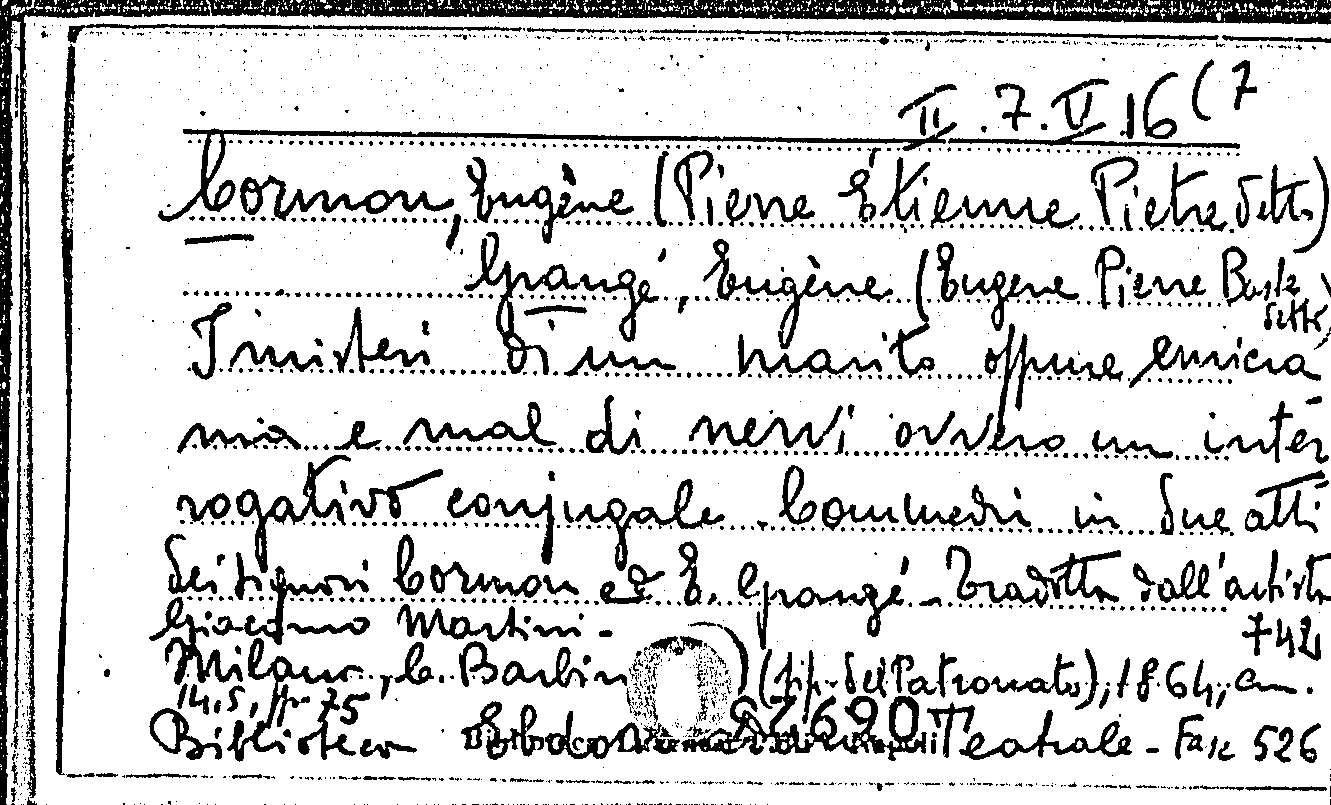 II.7.V.16(7
Cormon, Eugène (Pierre Étienne Pietre detto)
Grangé, Eugène (Eugene Pierre Baste
detto)
I misteri di un marito oppure emicra
nia e mal di nervi ovvero un inter
rogativo conjugale. Commedia in due atti
dei signori Cormon ed E. Grangé - Tradotta dall'artista
Giacomo Martini -
742
Milano, C. Barbini (tip. del Patronato), 1864, cm.
14,5, pp. 75
Biblioteca Teatrale - Fasc 526